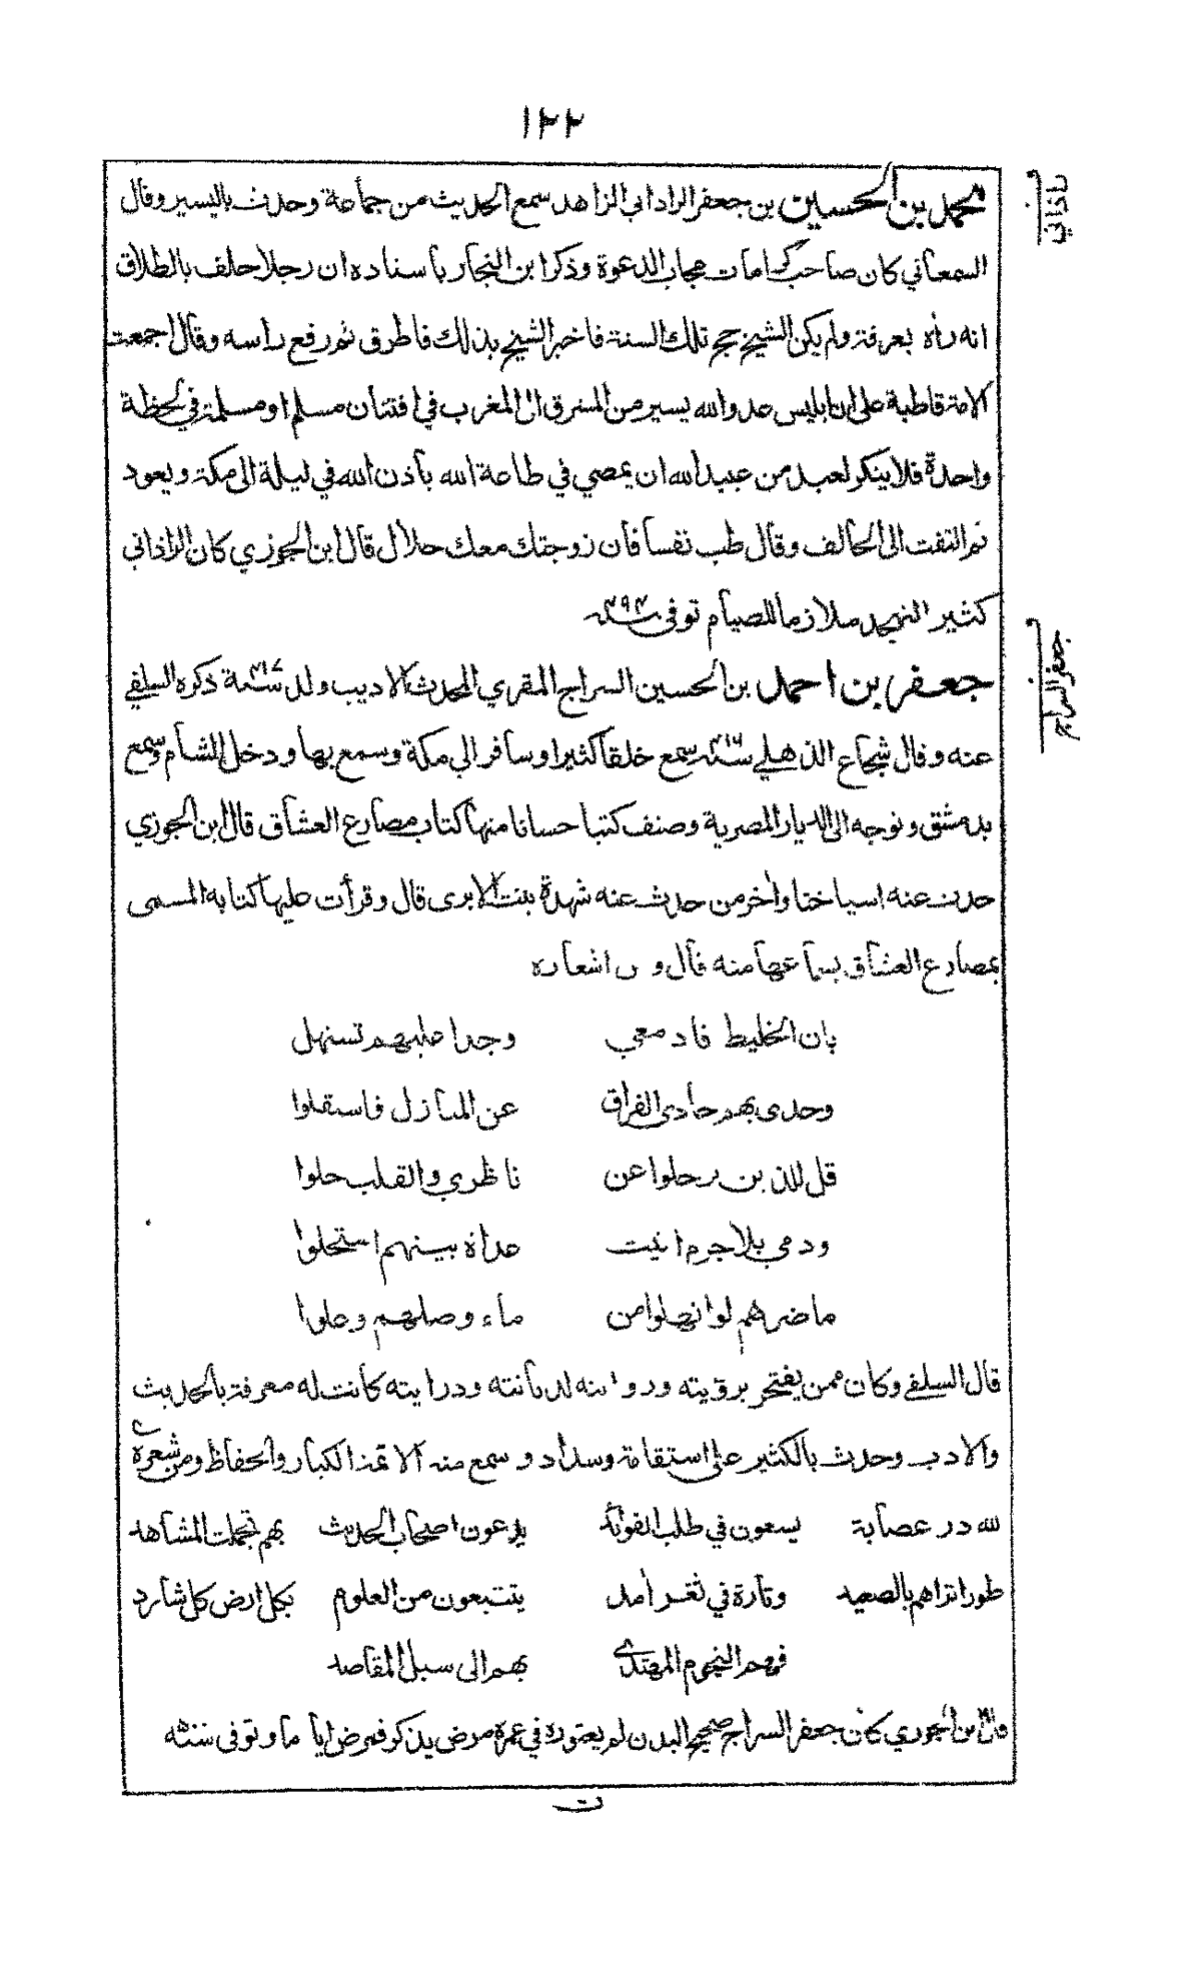 ١٢٢
محمد بن الحسين بن جعفر الراذاني الزاهد سمع الحديث من جماعة وحدث باليسير وقال
السمعاني كان صاحب كرامات مجاب الدعوة وذكر ابن النجار باسناده ان رجلا حلف بالطلاق
انه رأه بعرفة ولم يكن الشيخ حج تلك السنة فاخبر الشيخ بذلك فاطرق ثم رفع راسه وقال اجمعت
الامة قاطبة على ان ابليس عدو الله يسير من المشرق الى المغرب في افتتان مسلم او مسلمة في لحظة
واحدة فلا ينكر لعبد من عبيد الله ان يمضي في طاعة الله باذن الله في ليلة الى مكة ويعود
ثم التفت الى الحالف وقال طب نفسا فان زوجتك معك حلال قال ابن الجوزي كان الراذاني
كثير التهجد ملازما للصيام توفى
جعفر بن احمد بن الحسين السراج المقري المحدث الاديب ولد ذكره السلفي
عنه وقال شجاع الذهلي سمع خلقا كثيرا وسافر الي مكة وسمع بها ودخل الشام وسمع
بدمشق وتوجه الى الديار المصرية وصنف كتبا حسانا منها كتاب مصارع العشاق قال ابن الجوزي
حدث عنه اشياخنا واخر من حدث عنه شهدة بنت الابرى قال وقرأت عليها كتابه المسمى
بمصارع العشاق بسماعها منه قال و اشعاره
بان الخليط فادمعي وجدا عليهم تستهل
وحدى بهم حادى الفراق عن المنازل فاستقلوا
قل للذين رحلوا عن ناظري والقلب حلوا
ودمي بلا جرم اتيت غداة بينهم استحلوا
ما ضرهم لو انهلوا من ماء وصلهم وعلوا
قال السلفي وكان ممن يفتخر برؤيته وروايته لديانته ودرايته كانت له معرفة بالحديث
والادب وحدث بالكثير على استقامة وسداد وسمع منه الائمة الكبار والحفاظ ومن شعره
لله در عصابة يسعون في طلب الفوائد يدعون اصحاب الحديث بهم تجملت المشاهد
طورا تراهم بالصعيد وتارة في ثغر امد يتتبعون من العلوم بكل ارض كل شارد
فهم النجوم المهتدى بهم الى سبل المقاصد
قال ابن الجوزي كان جعفر السراج صحيح البدن لم يعتوره في عمره مرض يذكر فمرض اياما وتوفى سنة
راذاني
جعفر السراج